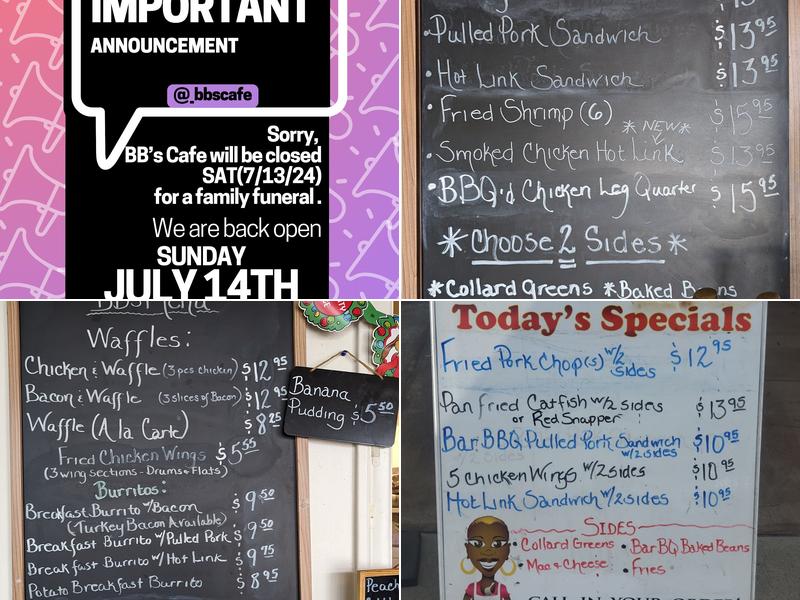 IMPORTANT
ANNOUNCEMENT
@_bbscafe
Sorry,
BB's Cafe will be closed
SAT(7/13/24)
for a family funeral .
We are back open
SUNDAY
JULY 14TH
•Pulled Pork Sandwich $13.95
•Hot Link Sandwich $13.95
•Fried Shrimp (6) $15.95
*NEW*
•Smoked Chicken Hot Link $13.95
•BBQ'd Chicken Leg Quarter $15.95
*Choose 2 Sides*
*Collard Greens *Baked Beans
BB's Menu
Waffles:
Chicken & Waffle (3 pcs chicken) $12.95
Bacon & Waffle (3 slices of Bacon) $12.95
Waffle (A la Carte) $8.25
Fried Chicken Wings $5.55
(3 wing sections - Drums & Flats)
Burritos:
Breakfast Burrito w/Bacon $9.50
(Turkey Bacon Available)
Breakfast Burrito w/Pulled Pork $9.50
Breakfast Burrito w/Hot Link $9.75
Potato Breakfast Burrito $8.95
Banana
Pudding $5.50
Peach
Today's Specials
Fried Pork Chop(s) w/2 sides $12.95
Pan Fried Catfish w/2 sides $13.95
or Red Snapper
Bar BBQ Pulled Pork Sandwich $10.95
w/2 sides
5 Chicken Wings w/2 sides $10.95
Hot Link Sandwich w/2 sides $10.95
SIDES
• Collard Greens • Bar BQ Baked Beans
• Mac & Cheese • Fries
CALL IN YOUR ORDER!